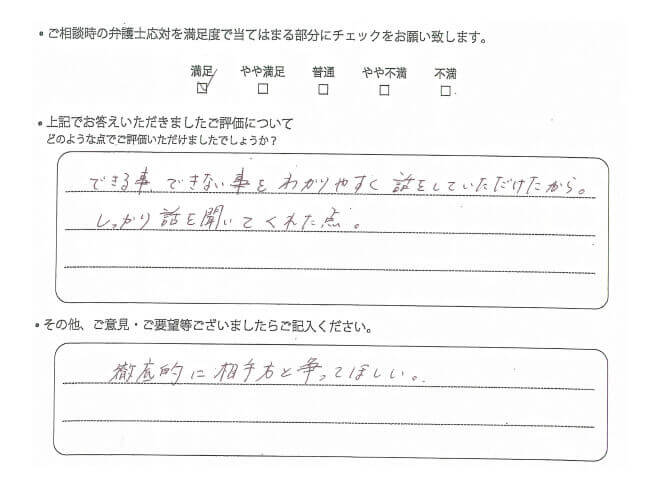 ・ご相談時の弁護士応対を満足度で当てはまる部分にチェックをお願い致します。
満足 やや満足 普通 やや不満 不満
☑ □ □ □ □
・上記でお答えいただきましたご評価について
どのような点でご評価いただけましたでしょうか？
できる事 できない事を わかりやすく 話をしていただけたから。
しっかり話を聞いてくれた点。
・その他、ご意見・ご要望等ございましたらご記入ください。
徹底的に相手方と争ってほしい。